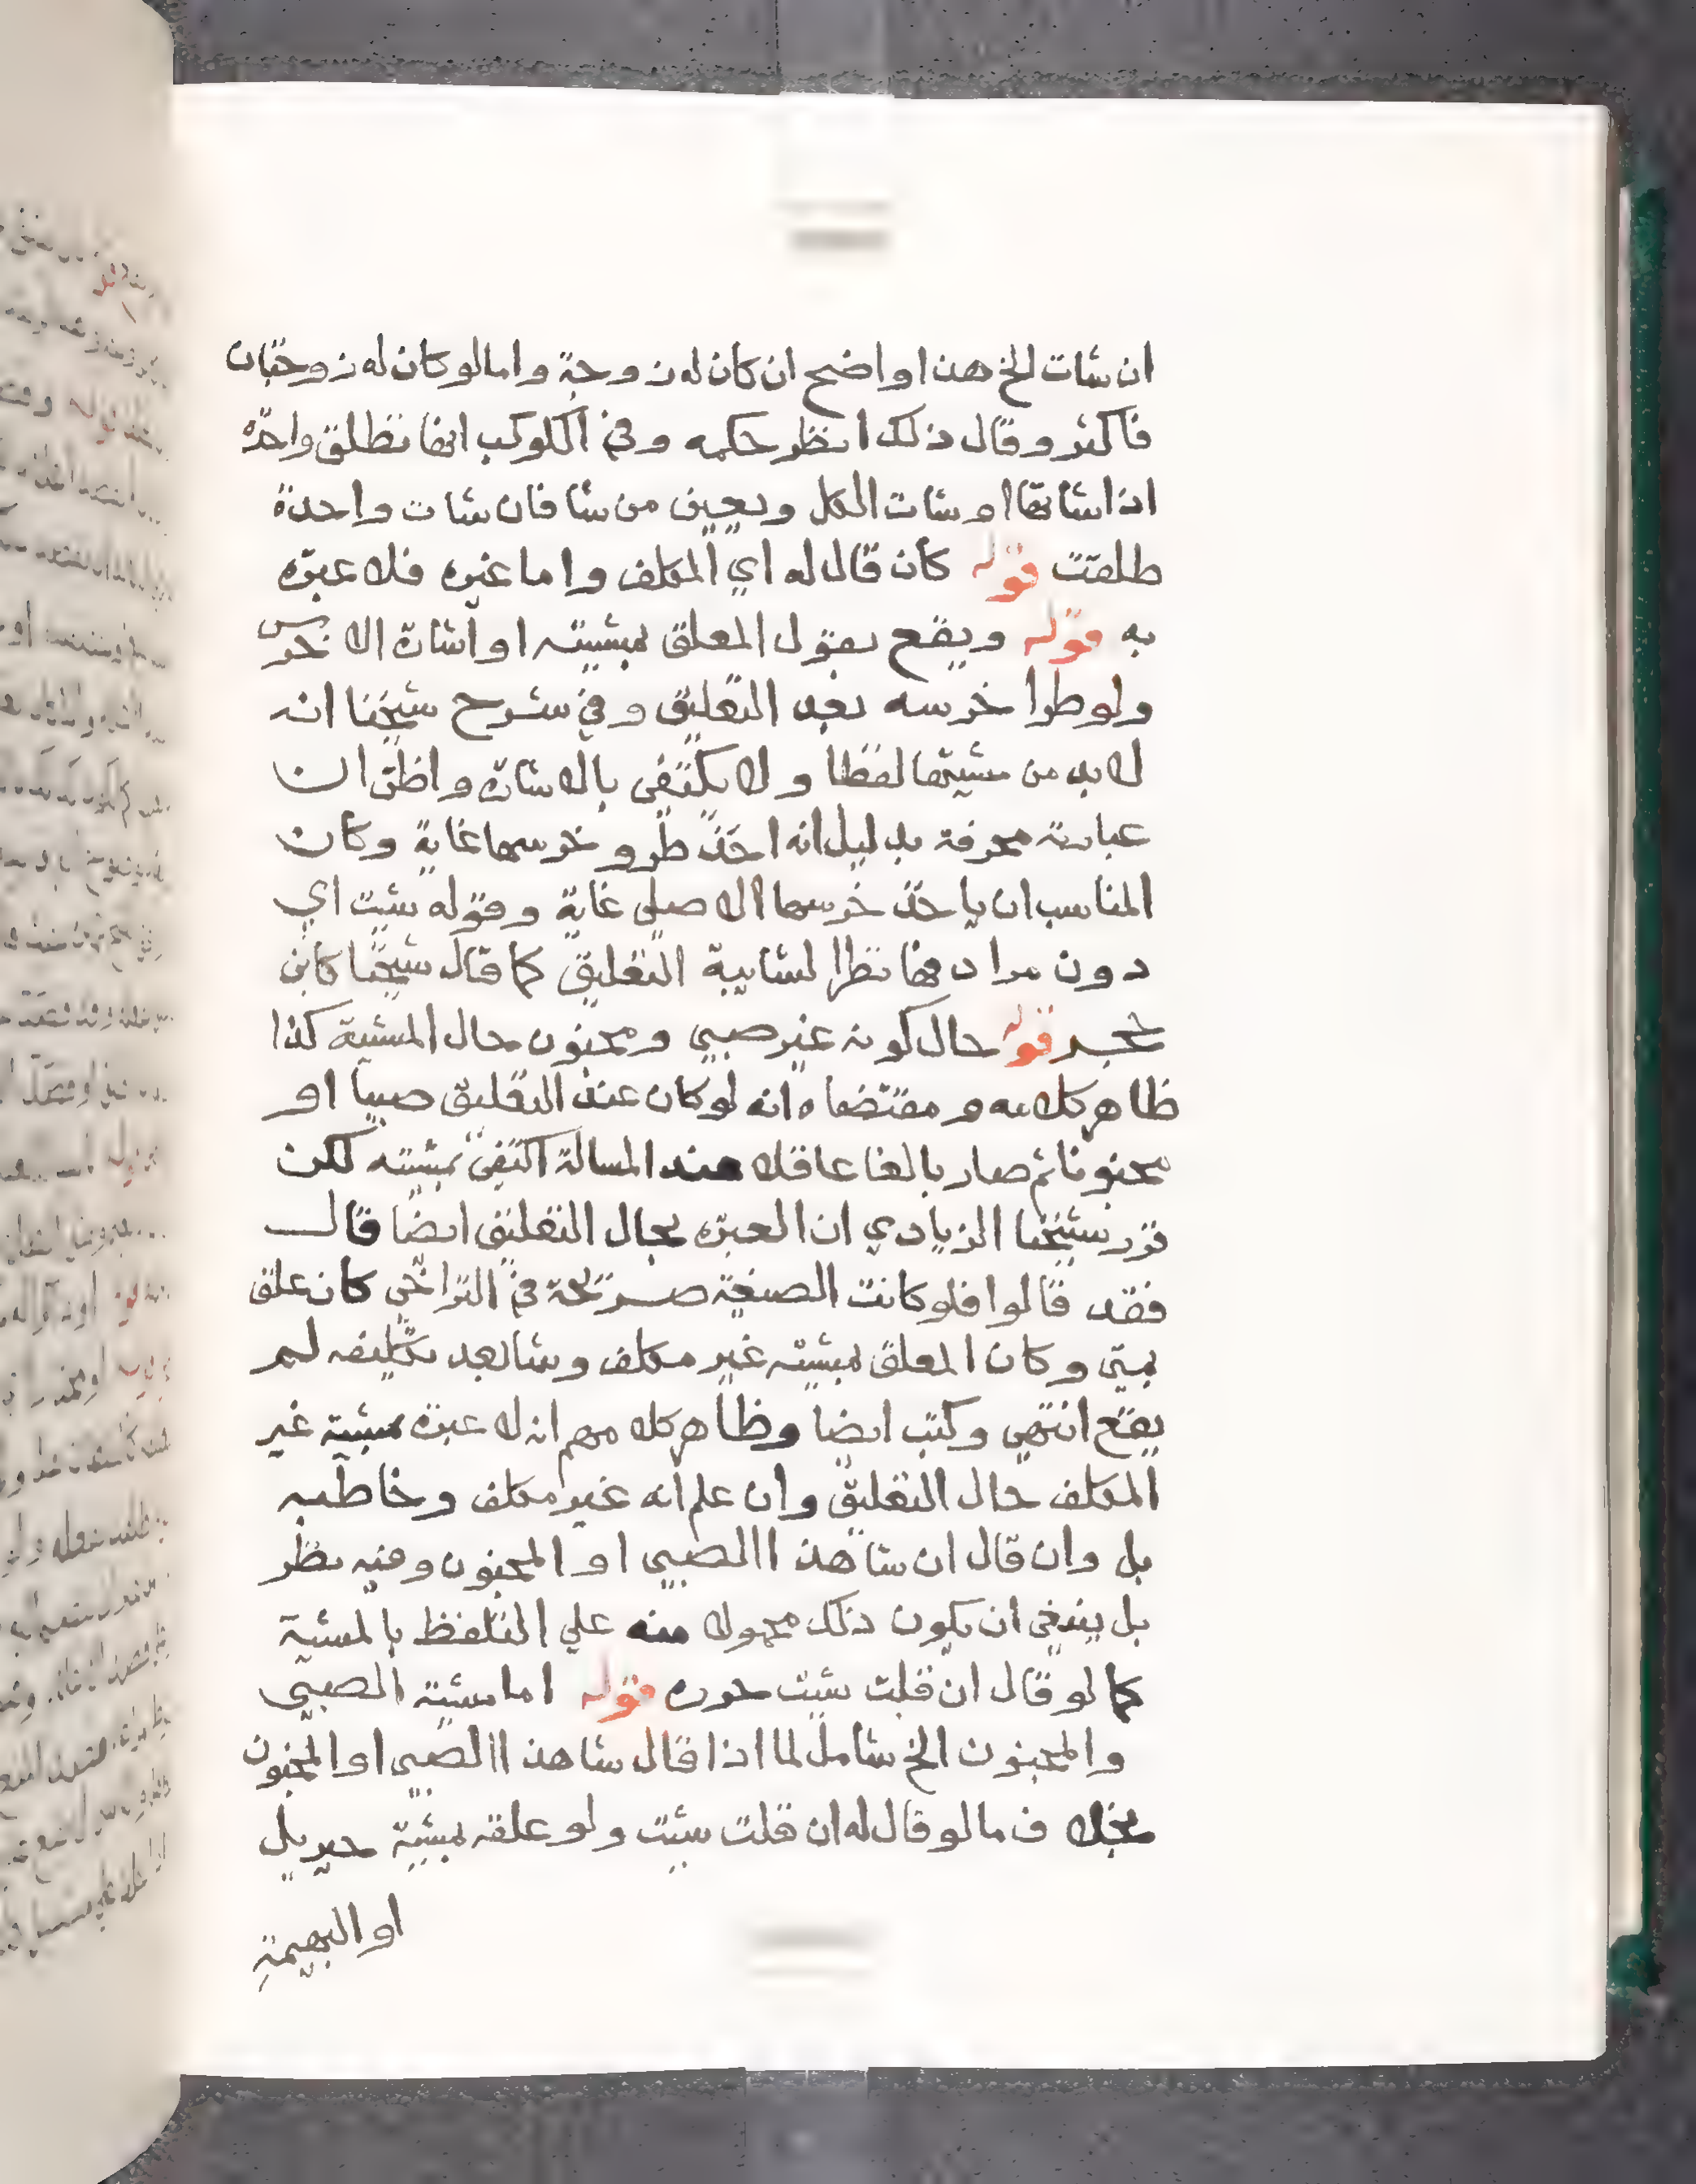 ان شات الخ هذا واضح ان كان له زوجة واما لو كان له زوجتان
فاكثر وقال ذلك انظر حكمه وفي الكوكب انها تطلق واحدة
اذا شاتها او شات الكل ويعين من شا فان شات واحدة
طلقت قوله كأن قال له اي المكلف واما غيره فلا عبرة
به قوله ويقع بقول المعلق بمشيته او اشارة الاخرس
ولو طرا خرسه بعد التعليق وفي شرح شيخنا انه
لا بد من مشيتها لفظا ولا يكتفي بالاشارة واظن ان
عبارته محرفة بدليل انه اخذ طرو خرسها غاية وكان
المناسب ان ياخذ خرسها الاصلي غاية وقوله شيت اي
دون مرادفها نظرا لشايبة التعليق كما قال شيخنا كابن
حجر قوله حال كونه غير صبي ومجنون حال المشية كذا
ظاهر كلامه ومقتضاه انه لو كان عند التعليق صبيا او
مجنونا ثم صار بالغا عاقلا عند المسالة اكتفي بمشيته لكن
قرر شيخنا الزيادي ان العبرة بحال التعليق ايضا قال
فقد قالوا فلو كانت الصيغة صريحة في التراخي كان علق
بمتي وكان المعلق بمشيته غير مكلف وشا بعد تكليفه لم
يقع انتهي وكتب ايضا وظاهر كلامهم انه لا عبرة بمشية غير
المكلف حال التعليق وان علم انه غير مكلف وخاطبه
بل وان قال ان شا هذا الصبي او المجنون وفيه نظر
بل ينبغي ان يكون ذلك محمولا منه علي التلفظ بالمشية
كما لو قال ان قلت شيت حوره قوله اما مشية الصبي
والمجنون الخ شامل لما اذا قال شا هذا الصبي او المجنون
بخلاف ما لو قال له ان قلت شيت ولو علقه بمشية جبريل
او البهيمة